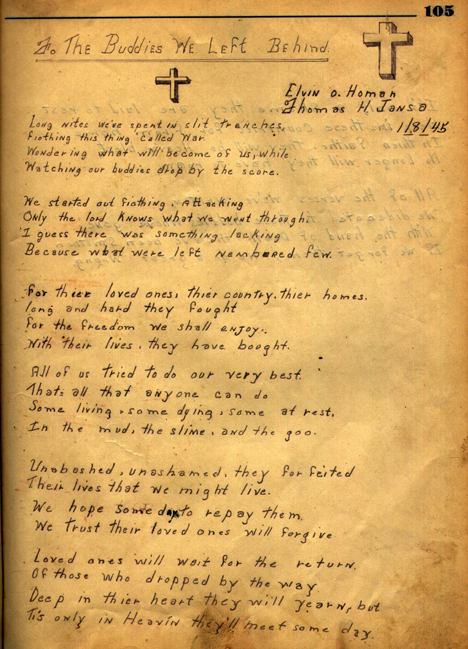 105
To The Buddies We Left Behind.
Elvin O. Homan
Thomas H. Jansa
1/8/45
Long nites we've spent in slit trenches,
Fiothing this thing called War
Wondering what will become of us, while
Watching our buddies drop by the score.
We started out fiothing, Attacking
Only the lord knows what we went through.
I guess there was something lacking
Because what were left numbered few.
For thier loved ones, thier country, thier homes.
long and hard they fought
For the freedom we shall enjoy.
With their lives, they have bought.
All of us tried to do our very best.
Thats all that anyone can do
Some living, some dying, some at rest,
In the mud, the slime, and the goo.
Unabashed, unashamed, they forfeited
Their lives that we might live.
We hope some day to repay them.
We trust their loved ones will forgive
Loved ones will wait for the return,
Of those who dropped by the way
Deep in thier heart they will yearn, but
Tis only in Heavin they'll meet some day.